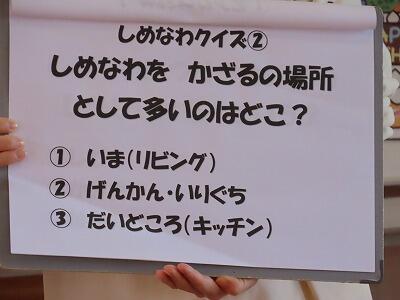 しめなわクイズ②
しめなわを かざるの場所
として多いのはどこ？
① いま(リビング)
② げんかん・いりぐち
③ だいどころ(キッチン)